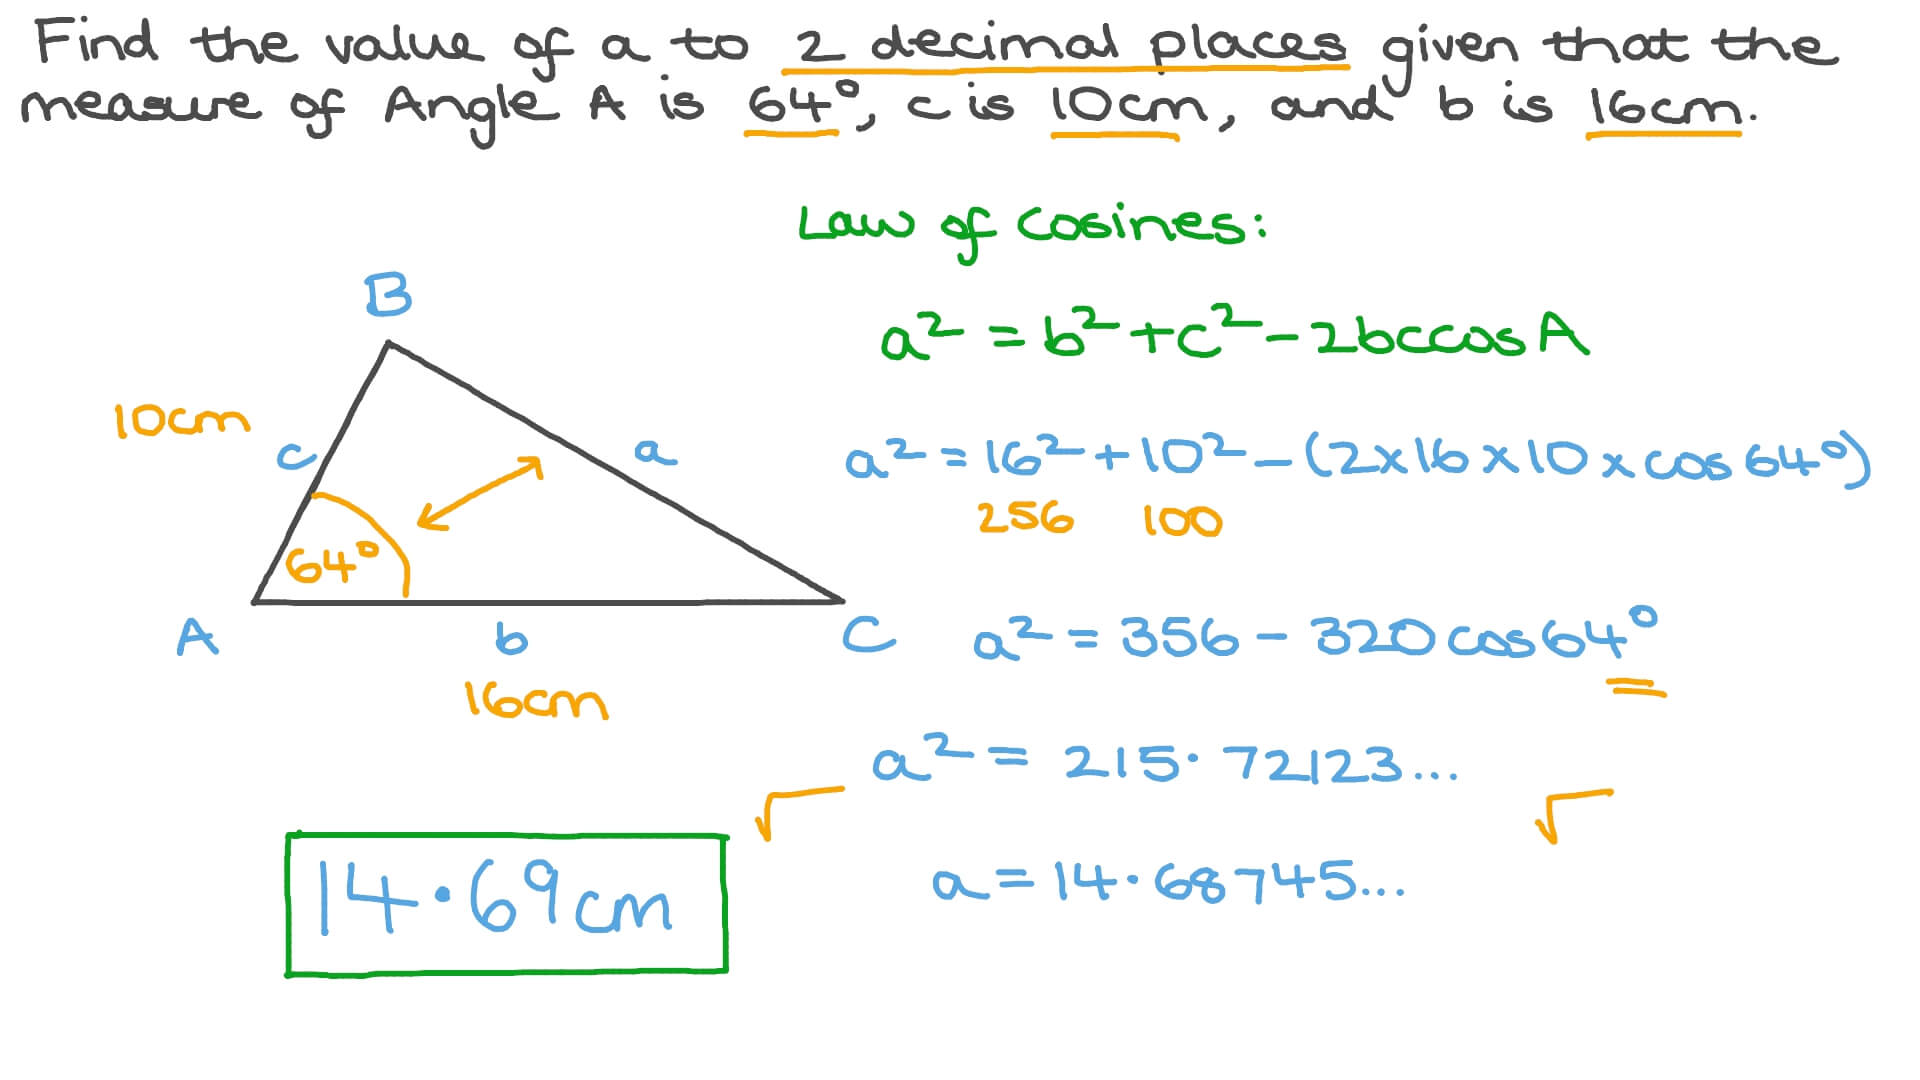 Find the value of a to 2 decimal places given that the
measure of Angle A is 64°, c is 10cm, and b is 16cm.
Law of cosines:
a² = b² + c² - 2bccosA
a² = 16² + 10² - (2x16x10xcos64°)
256 100
a² = 356 - 320cos64°
a² = 215.72123...
√ √
a = 14.68745...
B
10cm
c
a
64°
A
b
C
16cm
14.69cm